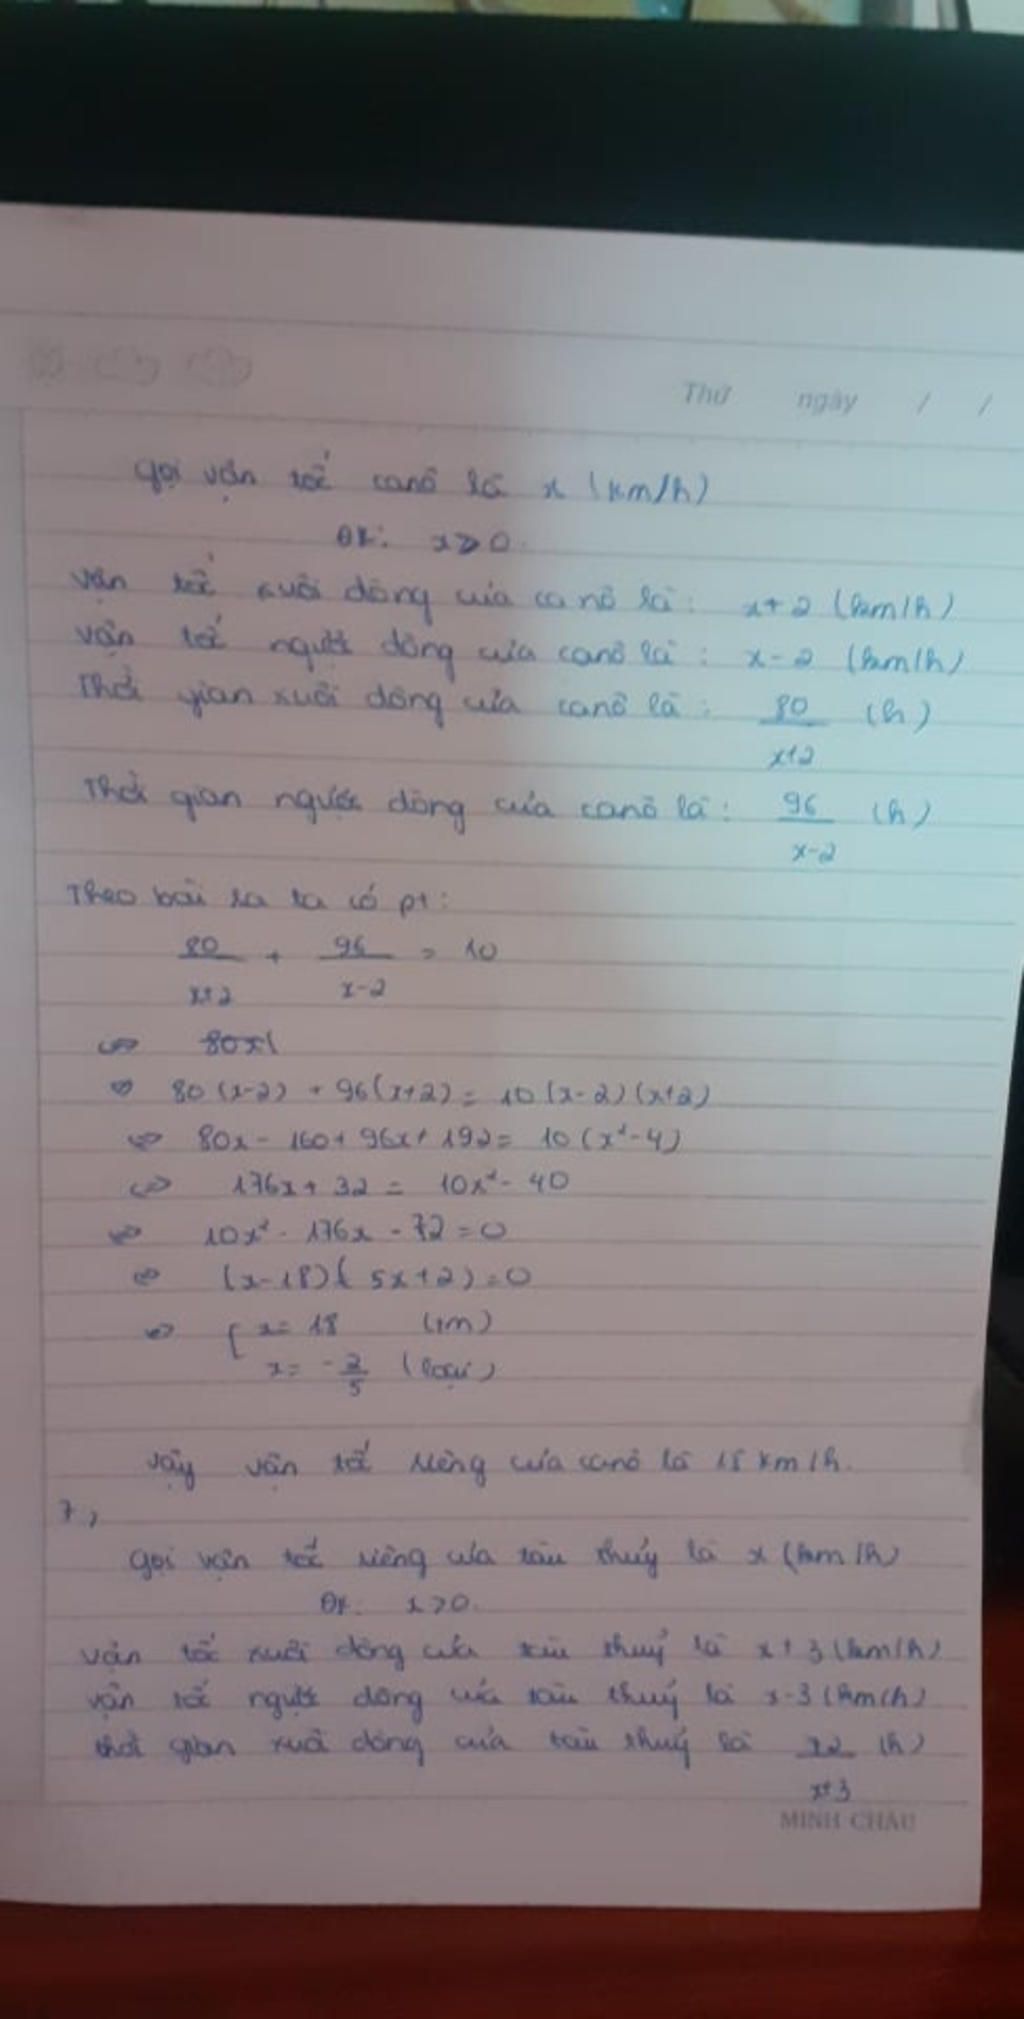 Thứ ngày / /
Gọi vận tốc canô là x (km/h)
ĐK: x > 0.
Vận tốc xuôi dòng của canô là: x+2 (km/h)
Vận tốc ngược dòng của canô là: x-2 (km/h)
Thời gian xuôi dòng của canô là: 80/x+2 (h)
Thời gian ngược dòng của canô là: 96/x-2 (h)
Theo bài ra ta có pt:
80/x+2 + 96/x-2 = 10
⇔ 80x
⇔ 80(x-2) + 96(x+2) = 10(x-2)(x+2)
⇔ 80x - 160 + 96x + 192 = 10(x²-4)
⇔ 176x + 32 = 10x² - 40
⇔ 10x² - 176x - 72 = 0
⇔ (x-18)(5x+2) = 0
⇔ [ x = 18 (tm)
x = -2/5 (loại)
Vậy vận tốc riêng của canô là 18 km/h.
7,
Gọi vận tốc riêng của tàu thuỷ là x (km/h)
ĐK: x > 0.
Vận tốc xuôi dòng của tàu thuỷ là x+3 (km/h)
vận tốc ngược dòng của tàu thuỷ là x-3 (km/h)
thời gian xuôi dòng của tàu thuỷ là /x+3 (h)
MINH CHÂU